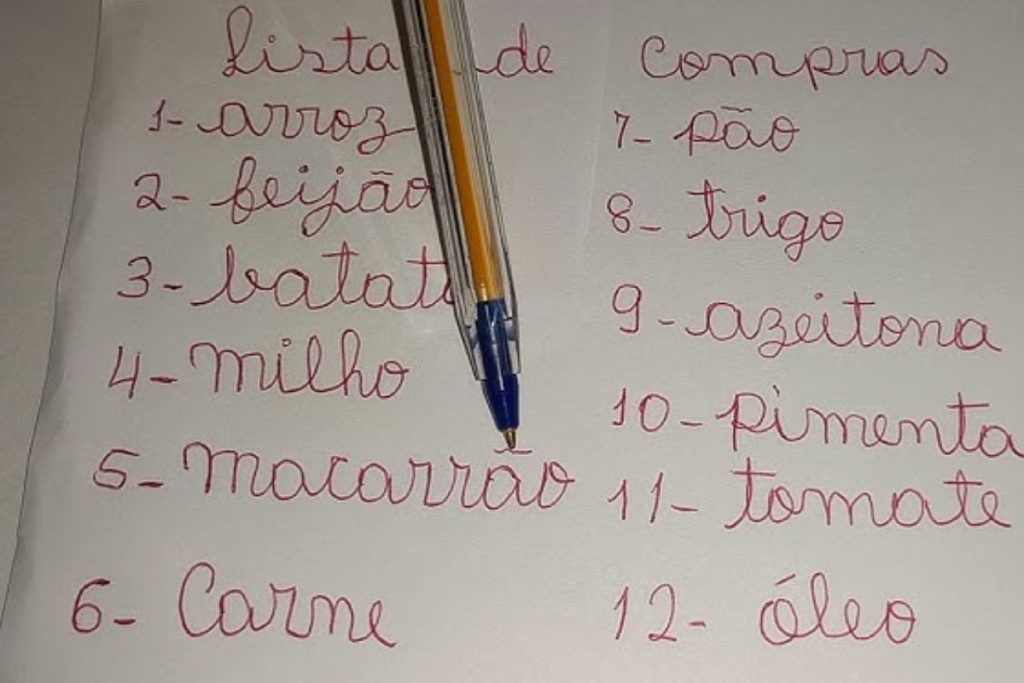 Lista de Compras
1- arroz
2- feijão
3- batat
4- milho
5- macarrão
6- Carne
7- pão
8- trigo
9- azeitona
10- pimenta
11- tomate
12- óleo